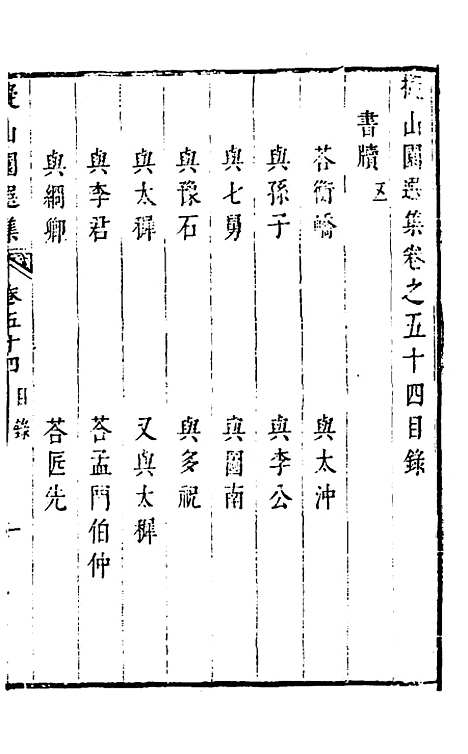 擬山園選集卷之五十四目錄
書牘 五
荅衡嶠 與太沖
與孫子 與李公
與七舅 與圖南
與豫石 與多祝
與太穉 又與太穉
與李君 荅孟門伯仲
與綱卿 荅匠先
擬山園選集 卷五十四 目錄 一